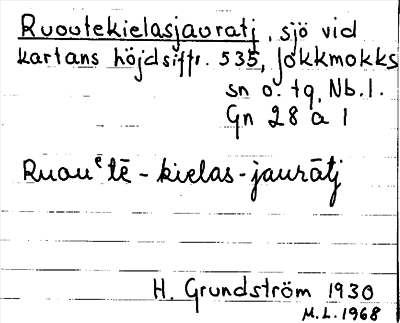 Ruoutekielasjauratj, sjö vid
kartans höjdsiffr. 535, Jokkmokks
sn o. tg, Nb. l.
Gn 28 a 1
Ruauᵉtē-kielas-jaurātj
H. Grundström 1930
M.L. 1968